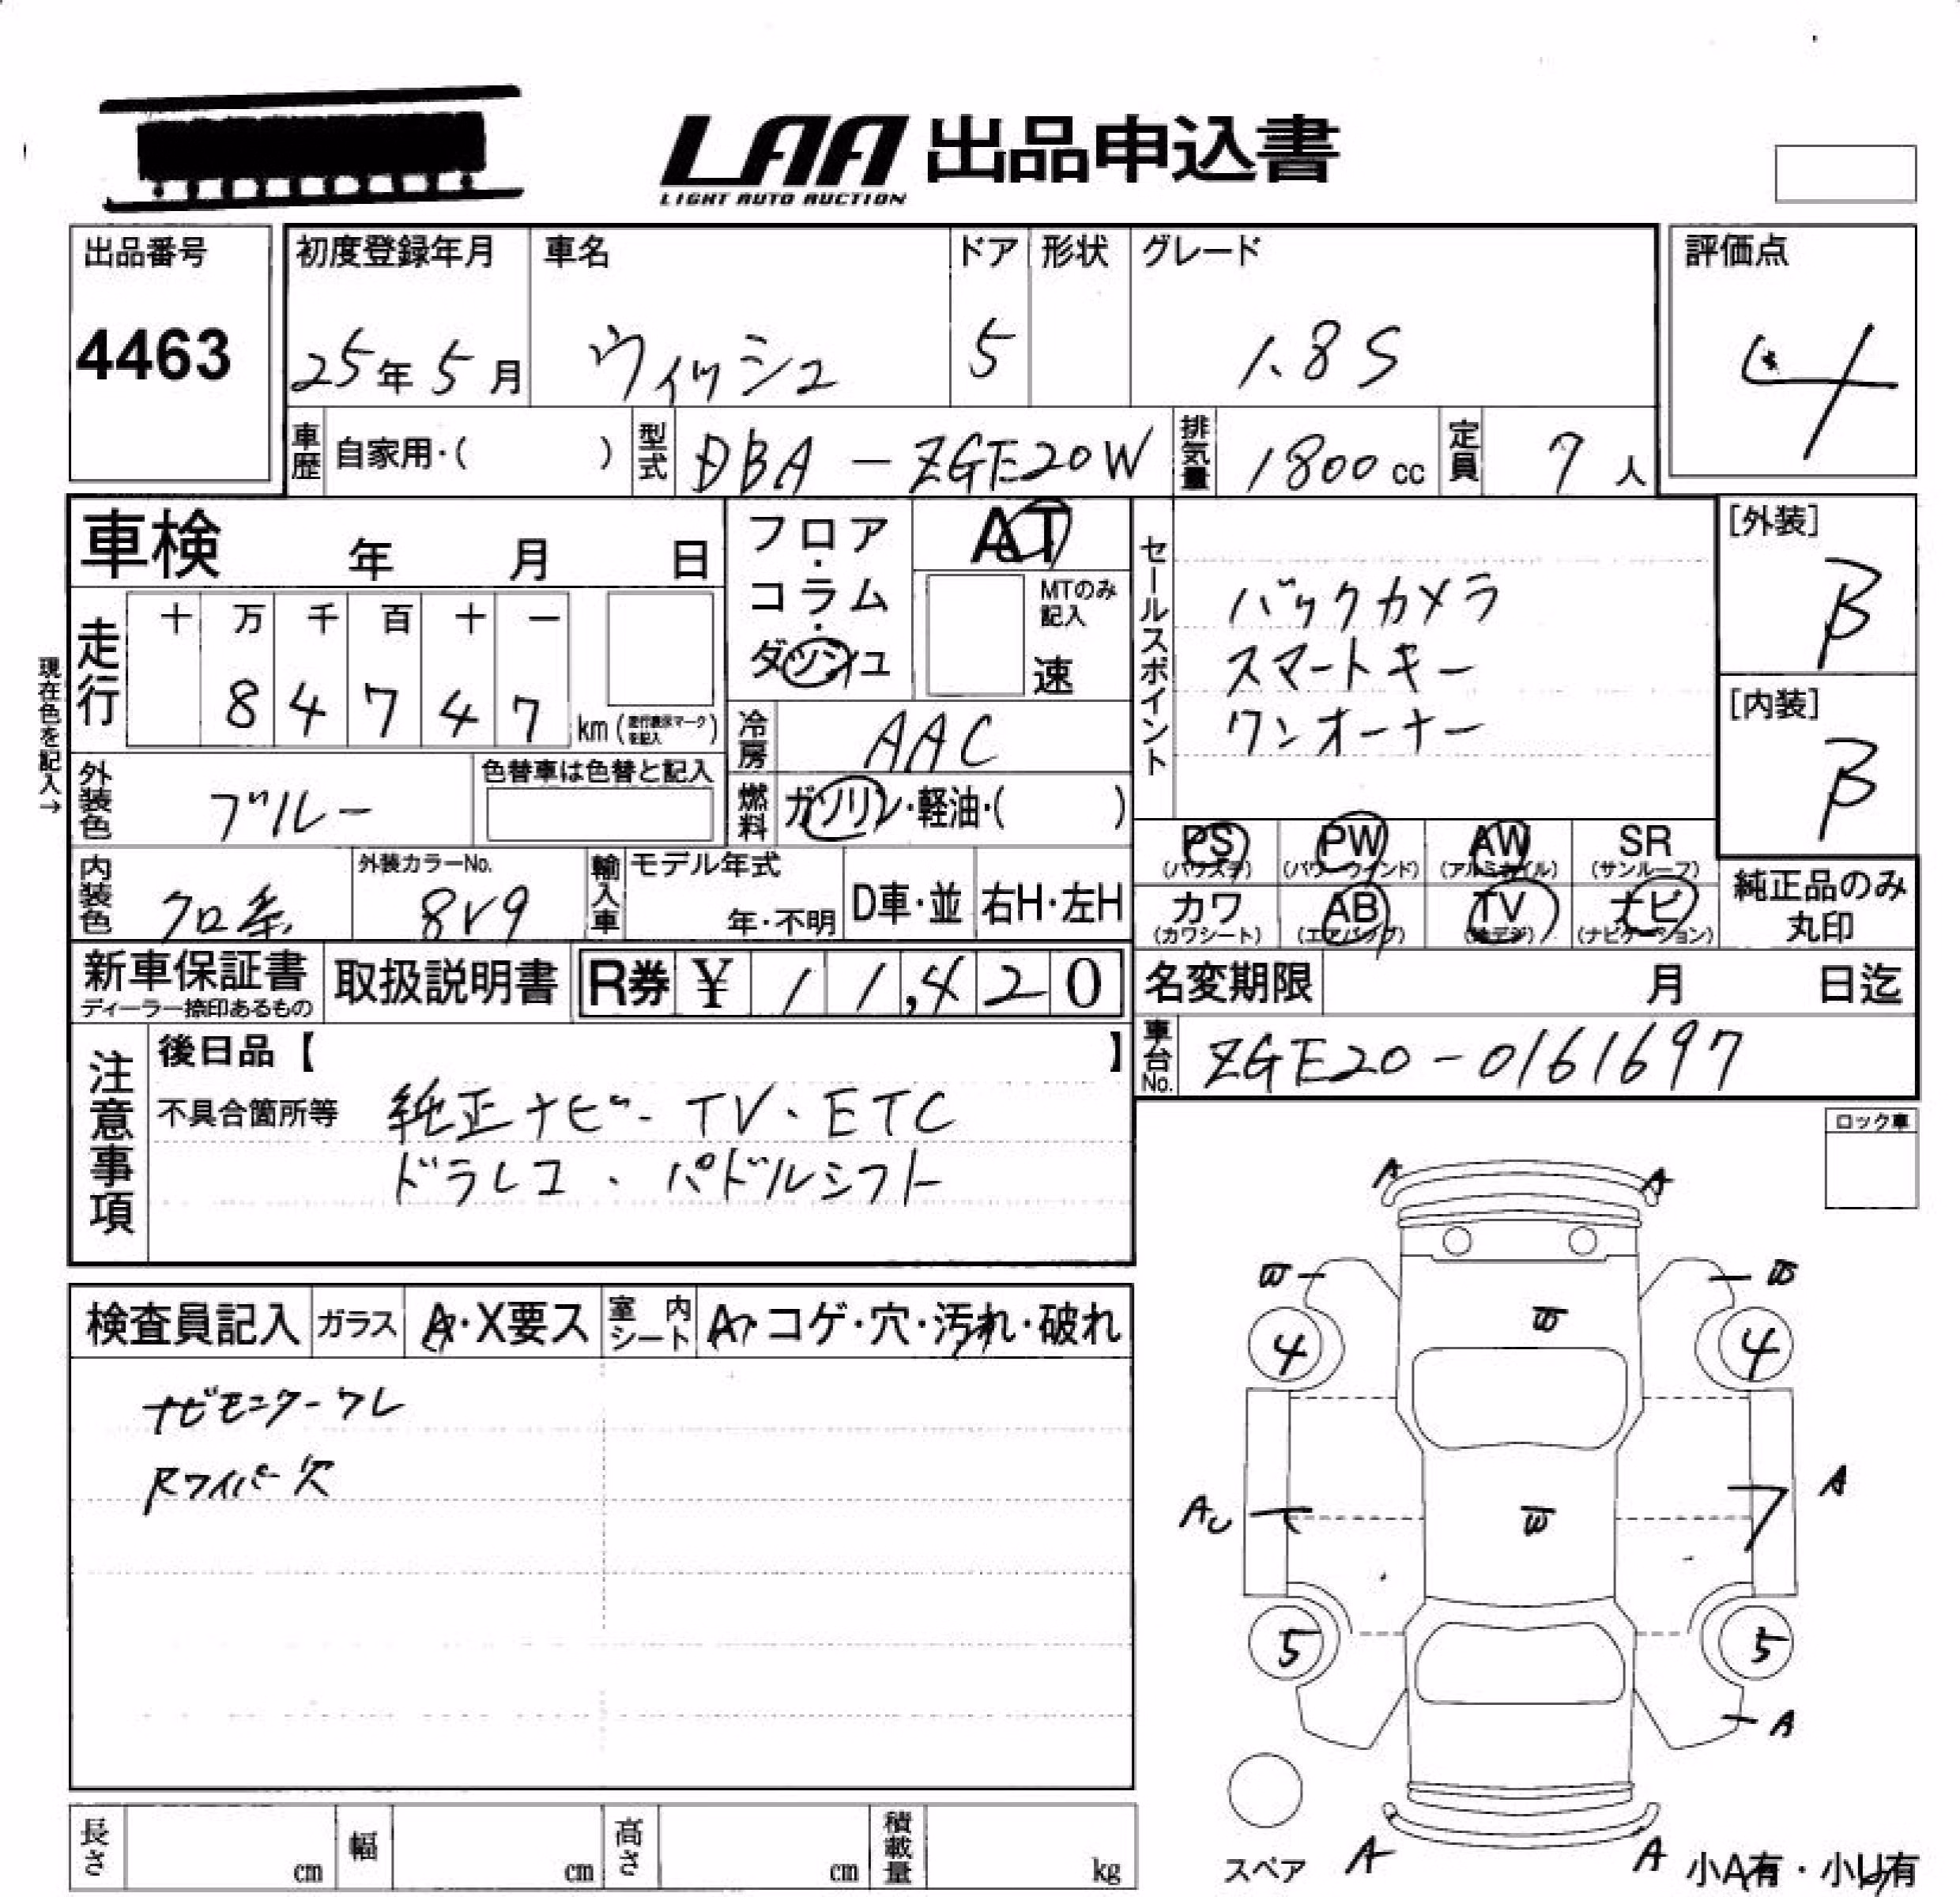 LAA 出品申込書
LIGHT AUTO AUCTION
出品番号
4463
初度登録年月
25年 5月
車名
ウィッシュ
ドア
5
形状
グレード
1.8S
評価点
4
車歴 自家用・( )
型式 DBA-ZGE20W
排気量 1800 cc
定員 7 人
車検 年 月 日
フロア・コラム・ダッシュ
AT
MTのみ記入
速
セールスポイント
バックカメラ
スマートキー
ワンオーナー
[外装]
B
[内装]
B
現在色を記入→
走行
十 万 千 百 十 一
8 4 7 4 7
km (走行表示マークを記入)
冷房 AAC
燃料 ガソリン・軽油・( )
外装色 ブルー
色替車は色替と記入
PS (パワステ)
PW (パワーウインド)
AW (アルミホイル)
SR (サンルーフ)
カワ (カワシート)
AB (エアバッグ)
TV (地デジ)
ナビ (ナビゲーション)
純正品のみ丸印
内装色 クロ系
外装カラーNo.
8V9
輸入車
モデル年式
年・不明
D車・並
右H・左H
新車保証書
ディーラー捺印あるもの
取扱説明書
R券 ¥ 11,420
名変期限 月 日迄
車台No. ZGE20-0161697
注意事項
後日品【 】
不具合箇所等 純正ナビ・TV・ETC
ドラレコ・パドルシフト
ロック車
検査員記入
ガラス A・X要ス
室内シート A・コゲ・穴・汚れ・破れ
ナビモニターワレ
Rワイパー欠
A A
W W
W
4 4
A
AU
W
5 5
A
スペア
A A
小A有・小U有
長さ cm
幅 cm
高さ cm
積載量 kg